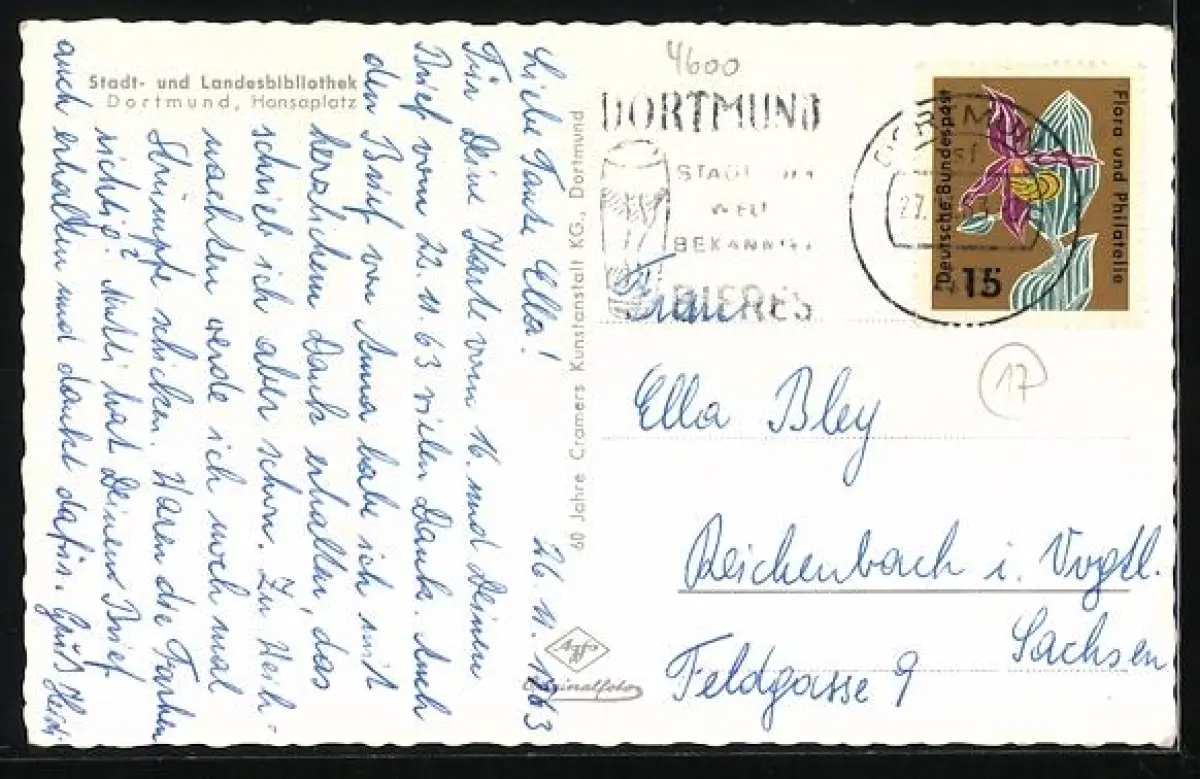 Stadt- und Landesbibliothek
Dortmund, Hansaplatz
Liebe Tante Ella! 26.11.1963
Für Deine Karte vom 16. und Deinen
Brief vom 22.11.63 vielen Dank. Auch
den Brief von Anna habe ich mit
herzlichem Dank erhalten, das
schrieb ich aber schon. Zu Weih-
nachten werde ich noch mal
Strümpfe schicken. Waren die Farben
richtig? Mutti hat Deinen Brief
auch erhalten und dankt dafür. Gruß Heidi
60 Jahre Cramers Kunstanstalt KG., Dortmund
Agfa
Originalfoto
4600
DORTMUND
STADT
WELT
BEKANNTEN
BIERES
DORTMUND
27.
Flora und Philatelie
Deutsche Bundespost
15
17
Frau
Ella Bley
Reichenbach i. Vogtl.
Sachsen
Feldgasse 9